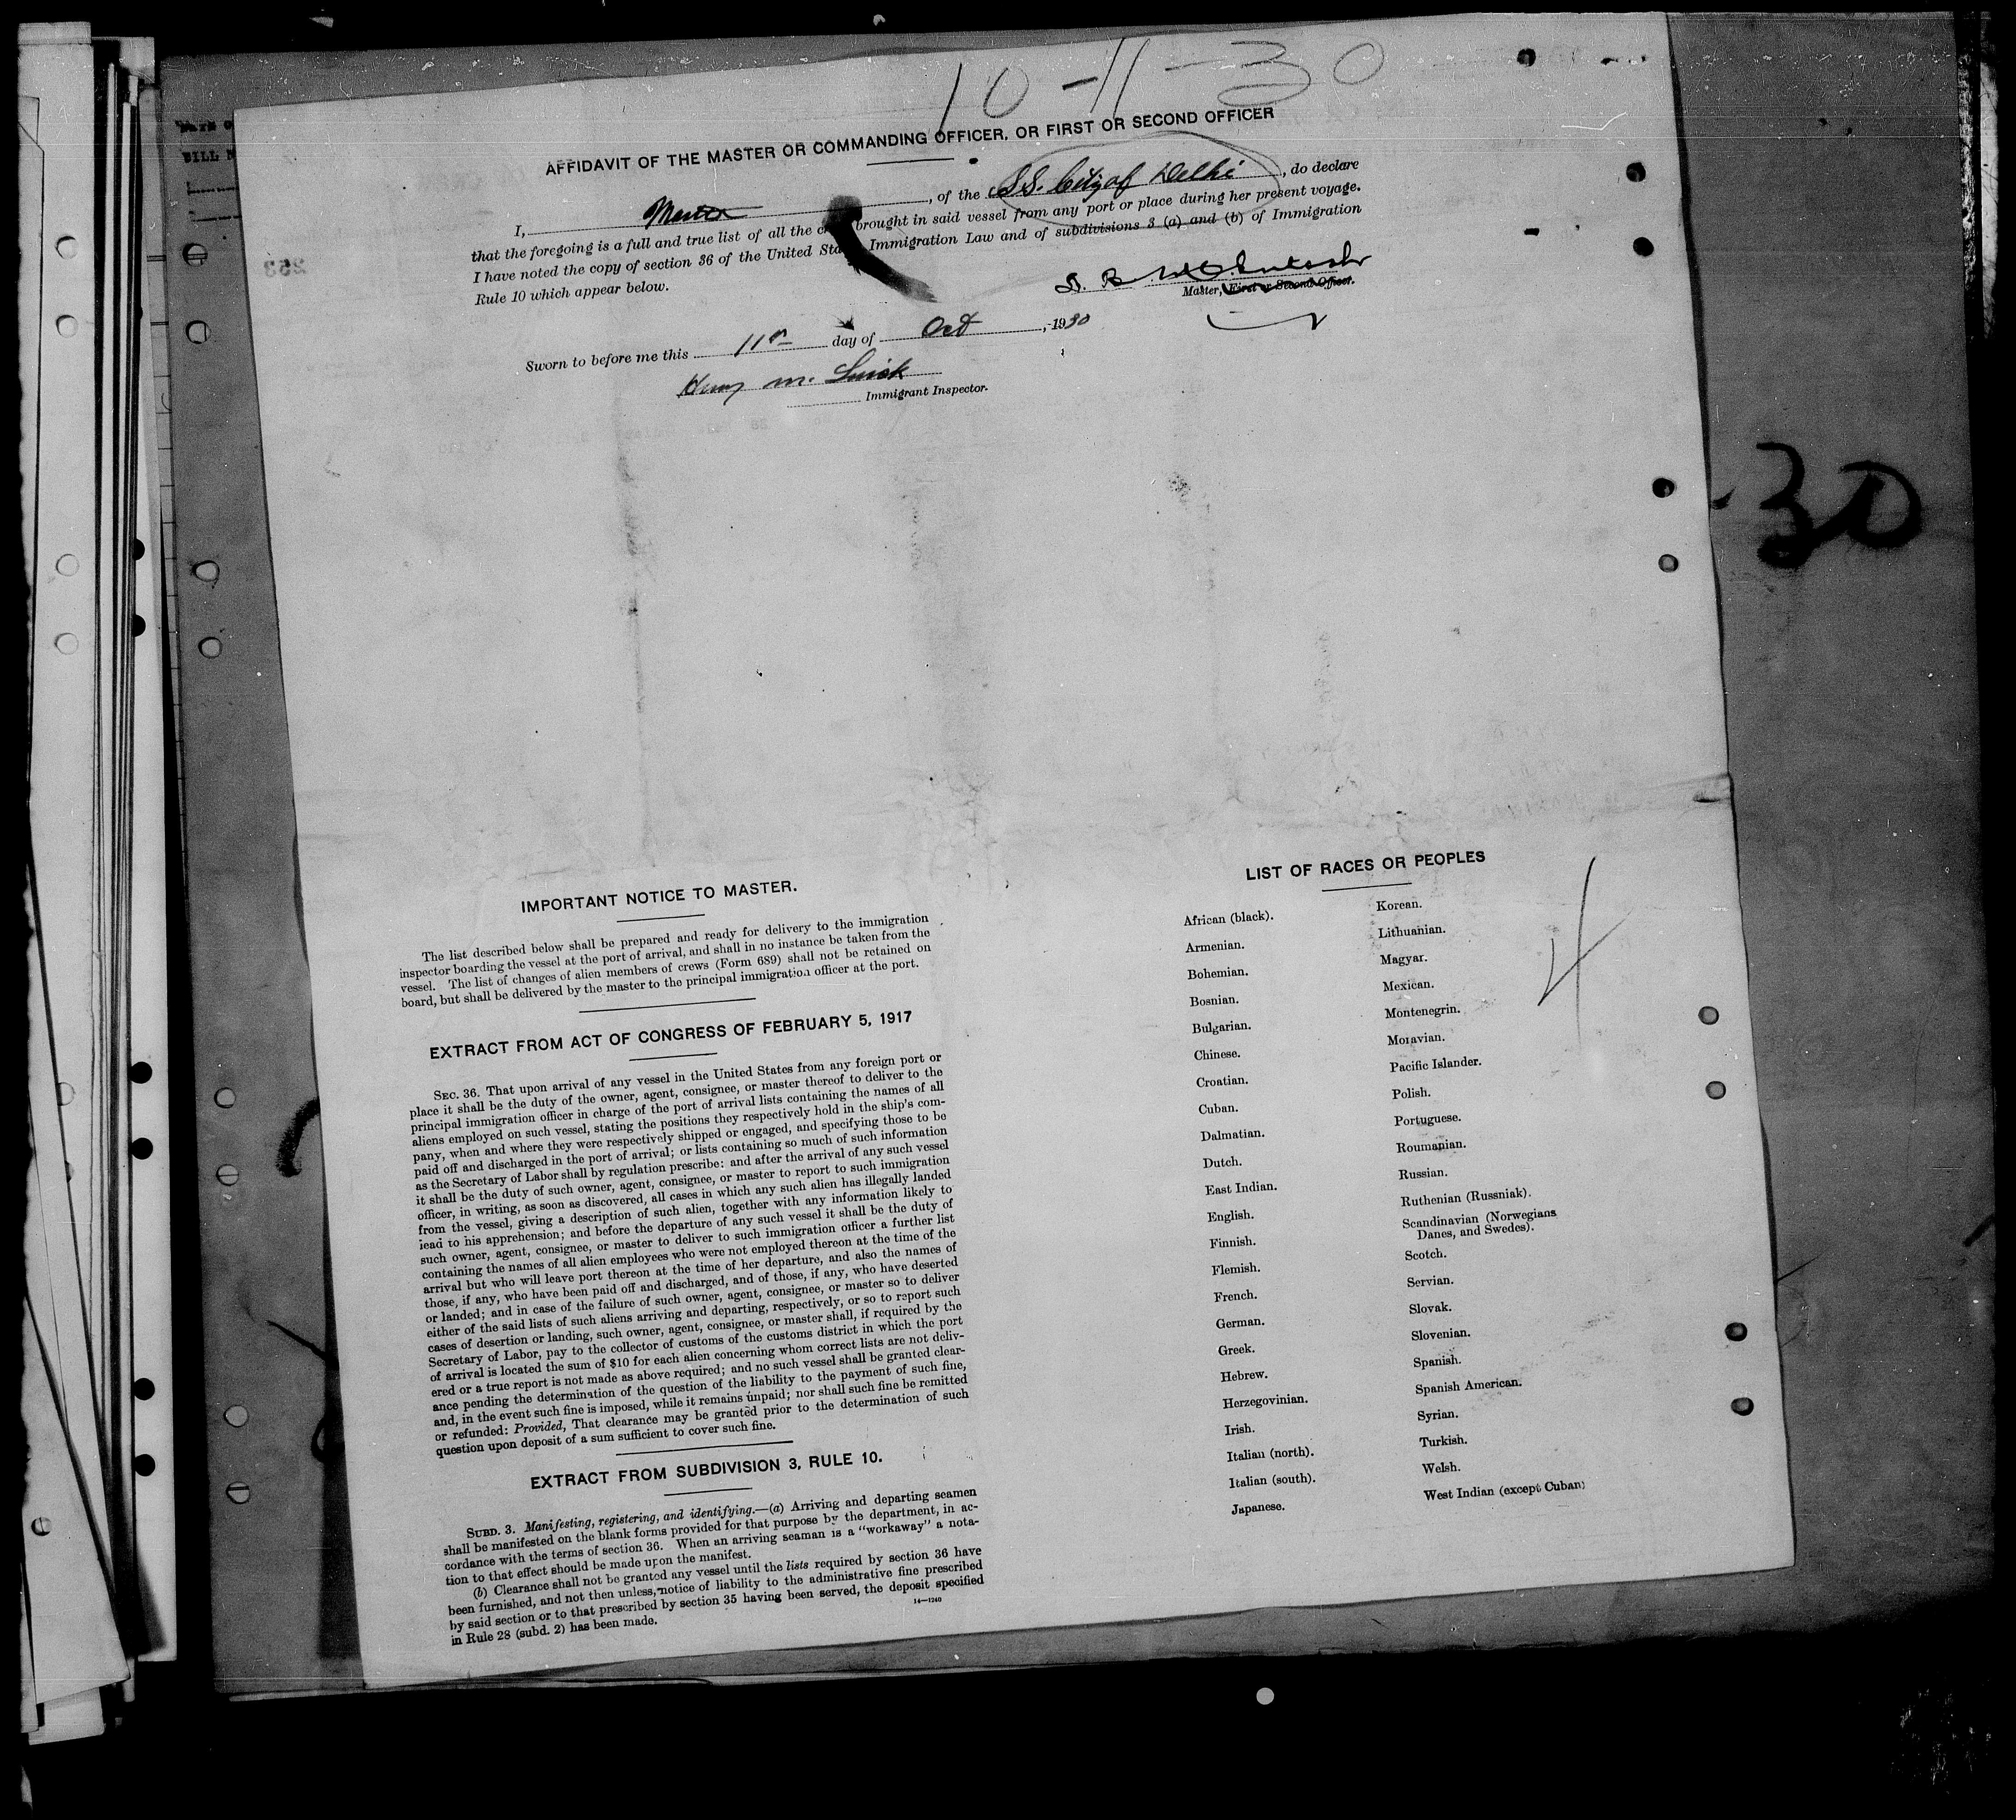 10-11-30
AFFIDAVIT OF THE MASTER OR COMMANDING OFFICER, OR FIRST OR SECOND OFFICER
I, Master, of the S.S. City of Delhi, do declare
that the foregoing is a full and true list of all the brought in said vessel from any port or place during her present voyage.
I have noted the copy of section 36 of the United Immigration Law and of subdivisions 3 (a) and (b) of Immigration
Rule 10 which appear below.
Master, First or Second Officer.
Sworn to before me this 11th day of Oct, 1930
Henry M.
Immigrant Inspector.
30
IMPORTANT NOTICE TO MASTER.
The list described below shall be prepared and ready for delivery to the immigration
inspector boarding the vessel at the port of arrival, and shall in no instance be taken from the
vessel. The list of changes of alien members of crews (Form 689) shall not be retained on
board, but shall be delivered by the master to the principal immigration officer at the port.
EXTRACT FROM ACT OF CONGRESS OF FEBRUARY 5, 1917
SEC. 36. That upon arrival of any vessel in the United States from any foreign port or
place it shall be the duty of the owner, agent, consignee, or master thereof to deliver to the
principal immigration officer in charge of the port of arrival lists containing the names of all
aliens employed on such vessel, stating the positions they respectively hold in the ship's com-
pany, when and where they were respectively shipped or engaged, and specifying those to be
paid off and discharged in the port of arrival; or lists containing so much of such information
as the Secretary of Labor shall by regulation prescribe: and after the arrival of any such vessel
it shall be the duty of such owner, agent, consignee, or master to report to such immigration
officer, in writing, as soon as discovered, all cases in which any such alien has illegally landed
from the vessel, giving a description of such alien, together with any information likely to
lead to his apprehension; and before the departure of any such vessel it shall be the duty of
such owner, agent, consignee, or master to deliver to such immigration officer a further list
containing the names of all alien employees who were not employed thereon at the time of the
arrival but who will leave port thereon at the time of her departure, and also the names of
those, if any, who have been paid off and discharged, and of those, if any, who have deserted
or landed; and in case of the failure of such owner, agent, consignee, or master so to deliver
either of the said lists of such aliens arriving and departing, respectively, or so to report such
cases of desertion or landing, such owner, agent, consignee, or master shall, if required by the
Secretary of Labor, pay to the collector of customs of the customs district in which the port
of arrival is located the sum of $10 for each alien concerning whom correct lists are not deliv-
ered or a true report is not made as above required; and no such vessel shall be granted clear-
ance pending the determination of the question of the liability to the payment of such fine,
and, in the event such fine is imposed, while it remains unpaid; nor shall such fine be remitted
or refunded: Provided, That clearance may be granted prior to the determination of such
question upon deposit of a sum sufficient to cover such fine.
EXTRACT FROM SUBDIVISION 3, RULE 10.
SUBD. 3. Manifesting, registering, and identifying.—(a) Arriving and departing seamen
shall be manifested on the blank forms provided for that purpose by the department, in ac-
cordance with the terms of section 36. When an arriving seaman is a "workaway" a nota-
tion to that effect should be made upon the manifest.
(b) Clearance shall not be granted any vessel until the lists required by section 36 have
been furnished, and not then unless, notice of liability to the administrative fine prescribed
by said section or to that prescribed by section 35 having been served, the deposit specified
in Rule 28 (subd. 2) has been made.
14—1240
LIST OF RACES OR PEOPLES
4
African (black).
Armenian.
Bohemian.
Bosnian.
Bulgarian.
Chinese.
Croatian.
Cuban.
Dalmatian.
Dutch.
East Indian.
English.
Finnish.
Flemish.
French.
German.
Greek.
Hebrew.
Herzegovinian.
Irish.
Italian (north).
Italian (south).
Japanese.
Korean.
Lithuanian.
Magyar.
Mexican.
Montenegrin.
Moravian.
Pacific Islander.
Polish.
Portuguese.
Roumanian.
Russian.
Ruthenian (Russniak).
Scandinavian (Norwegians
Danes, and Swedes).
Scotch.
Servian.
Slovak.
Slovenian.
Spanish.
Spanish American.
Syrian.
Turkish.
Welsh.
West Indian (except Cuban)